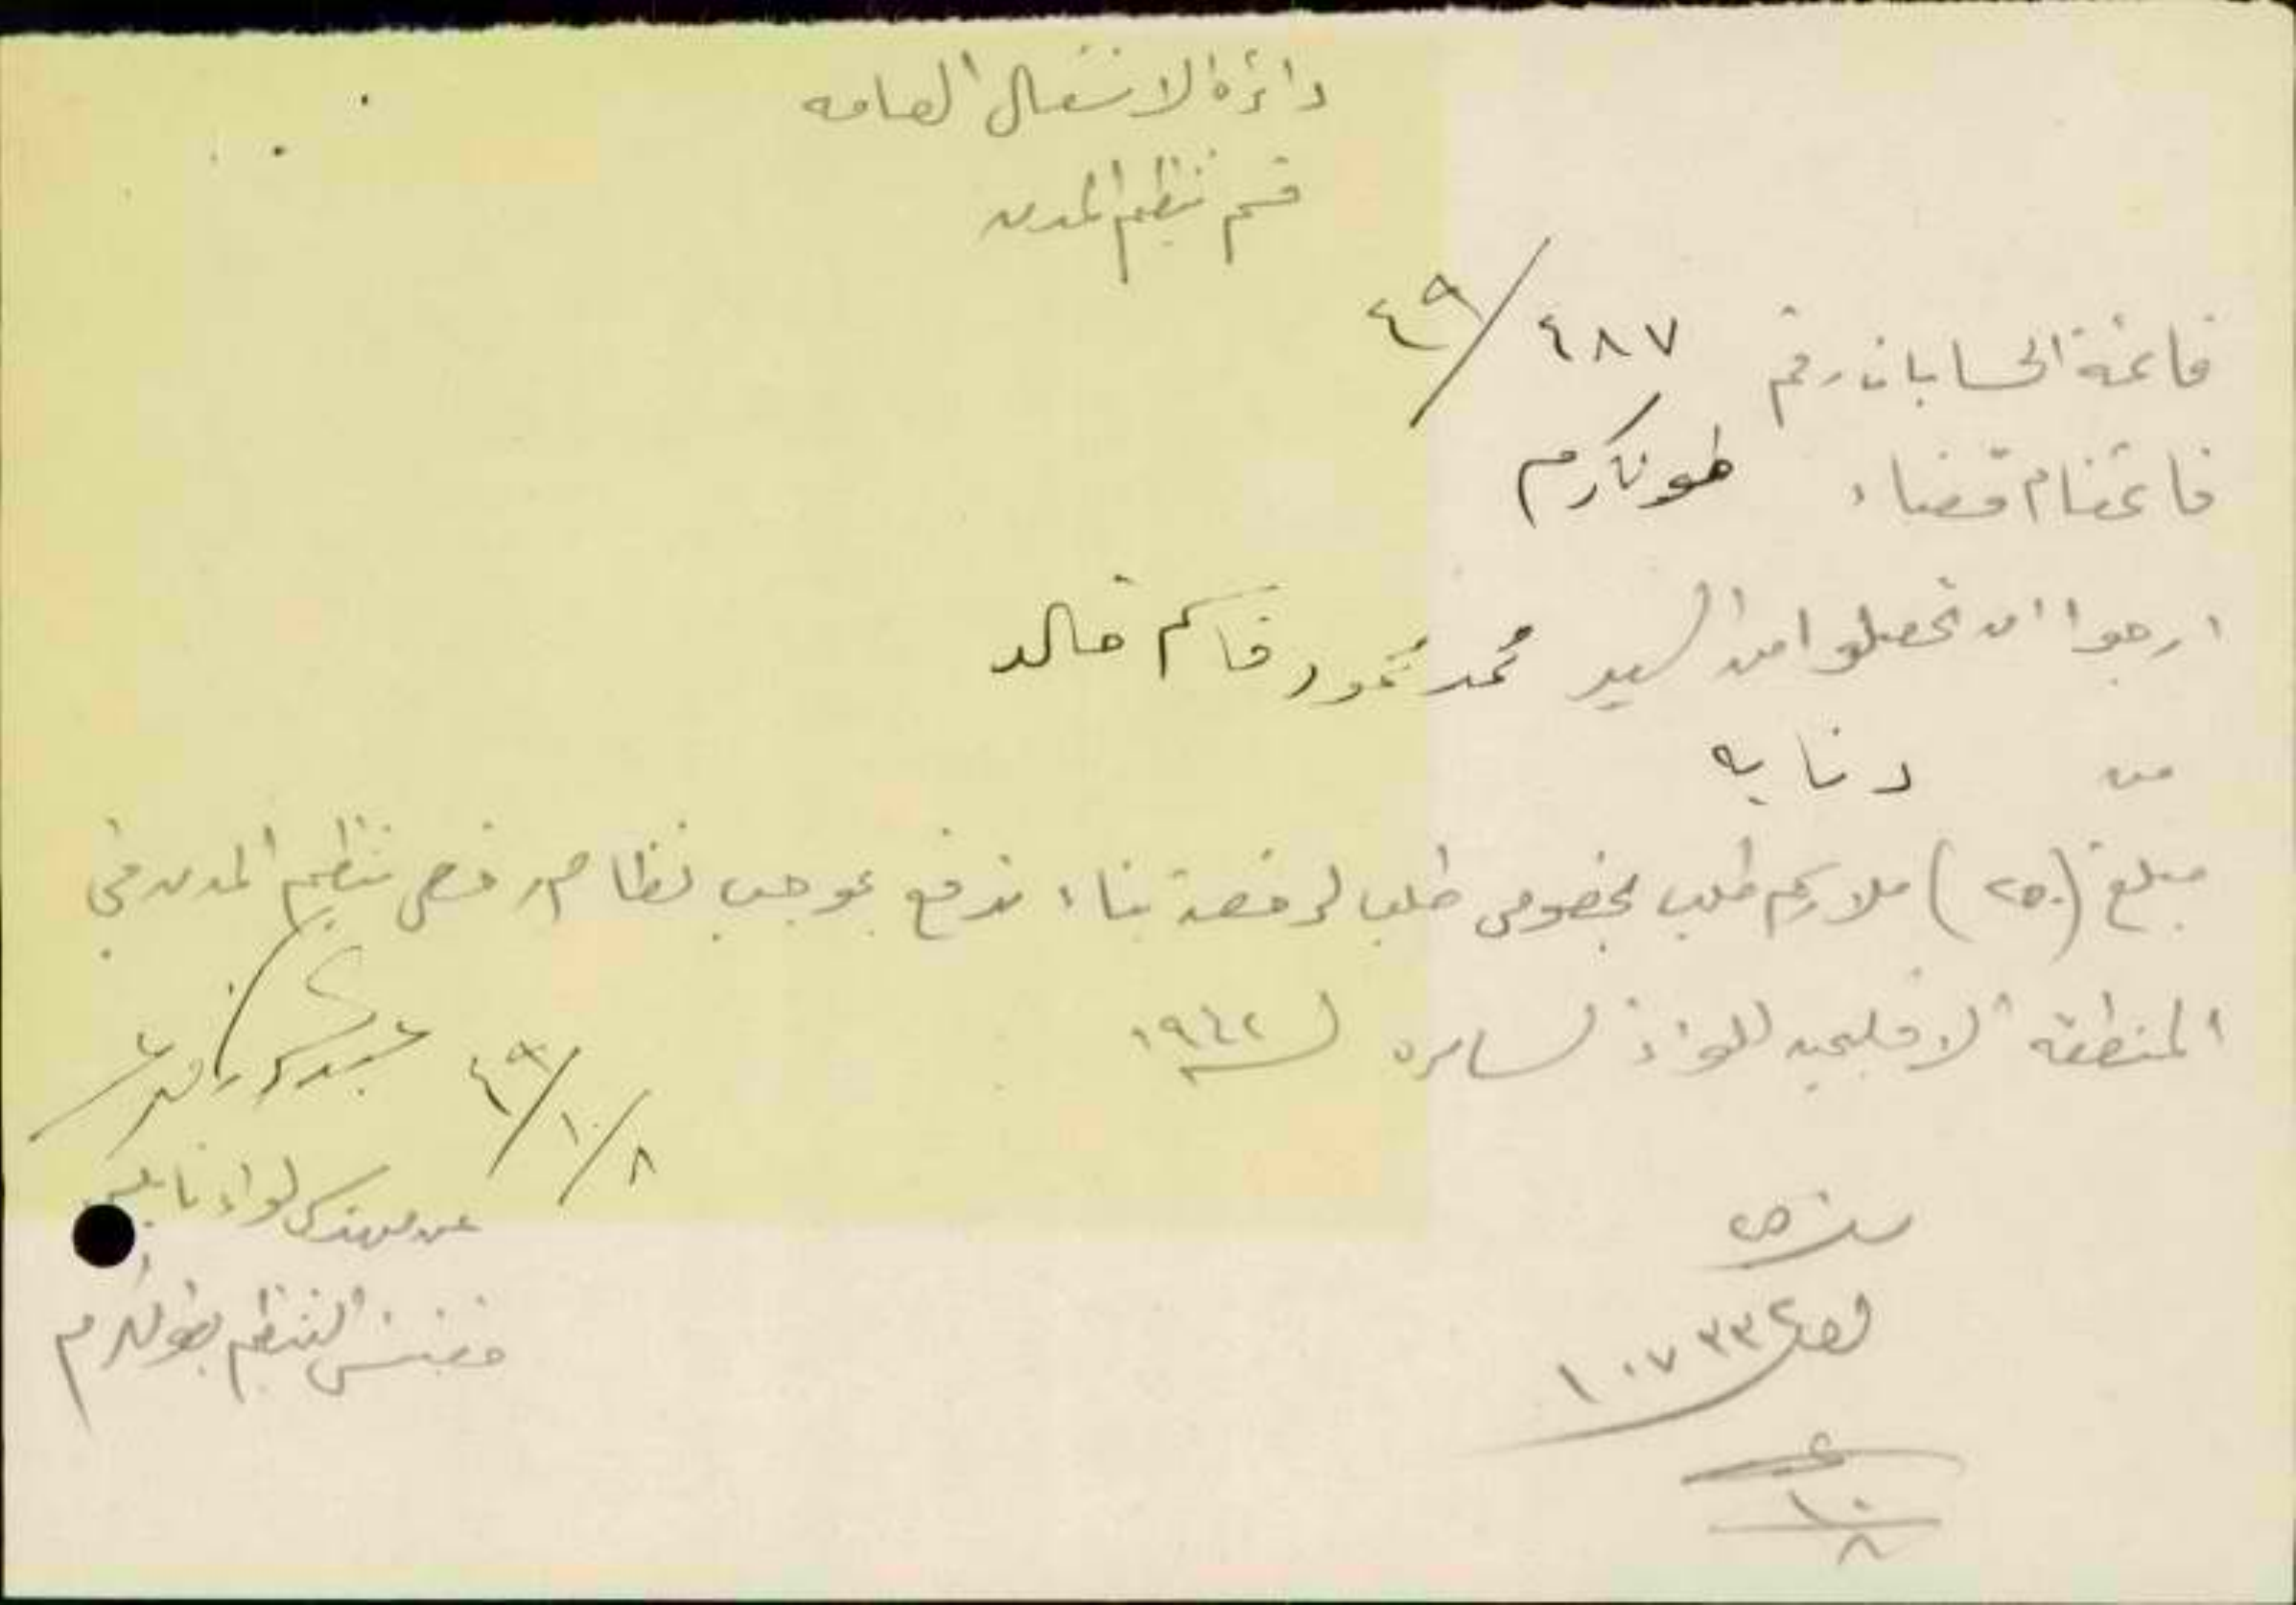 دائرة الاشغال العامه
قسم تنظيم المدن
قائمة الحسابات رقم ٤٨٧ / ٤٩
قائمقام قضاء طولكرم
ارجوا ان تحصلوا من السيد محمد محمود قاسم خالد
من دنابه
مبلغ (٢٥٠) ملا رسم طلب بخصوص طلب لرخصة بناء تدفع بموجب نظام رخص تنظيم المدن في
المنطقة الاقليمية للواء السامره لسنة ١٩٤٢
٨/١٠/٤٩
عن مهندس لواء نابلس
مفتش التنظيم بطولكرم
١٠٧٣٣٤
١٠
٨